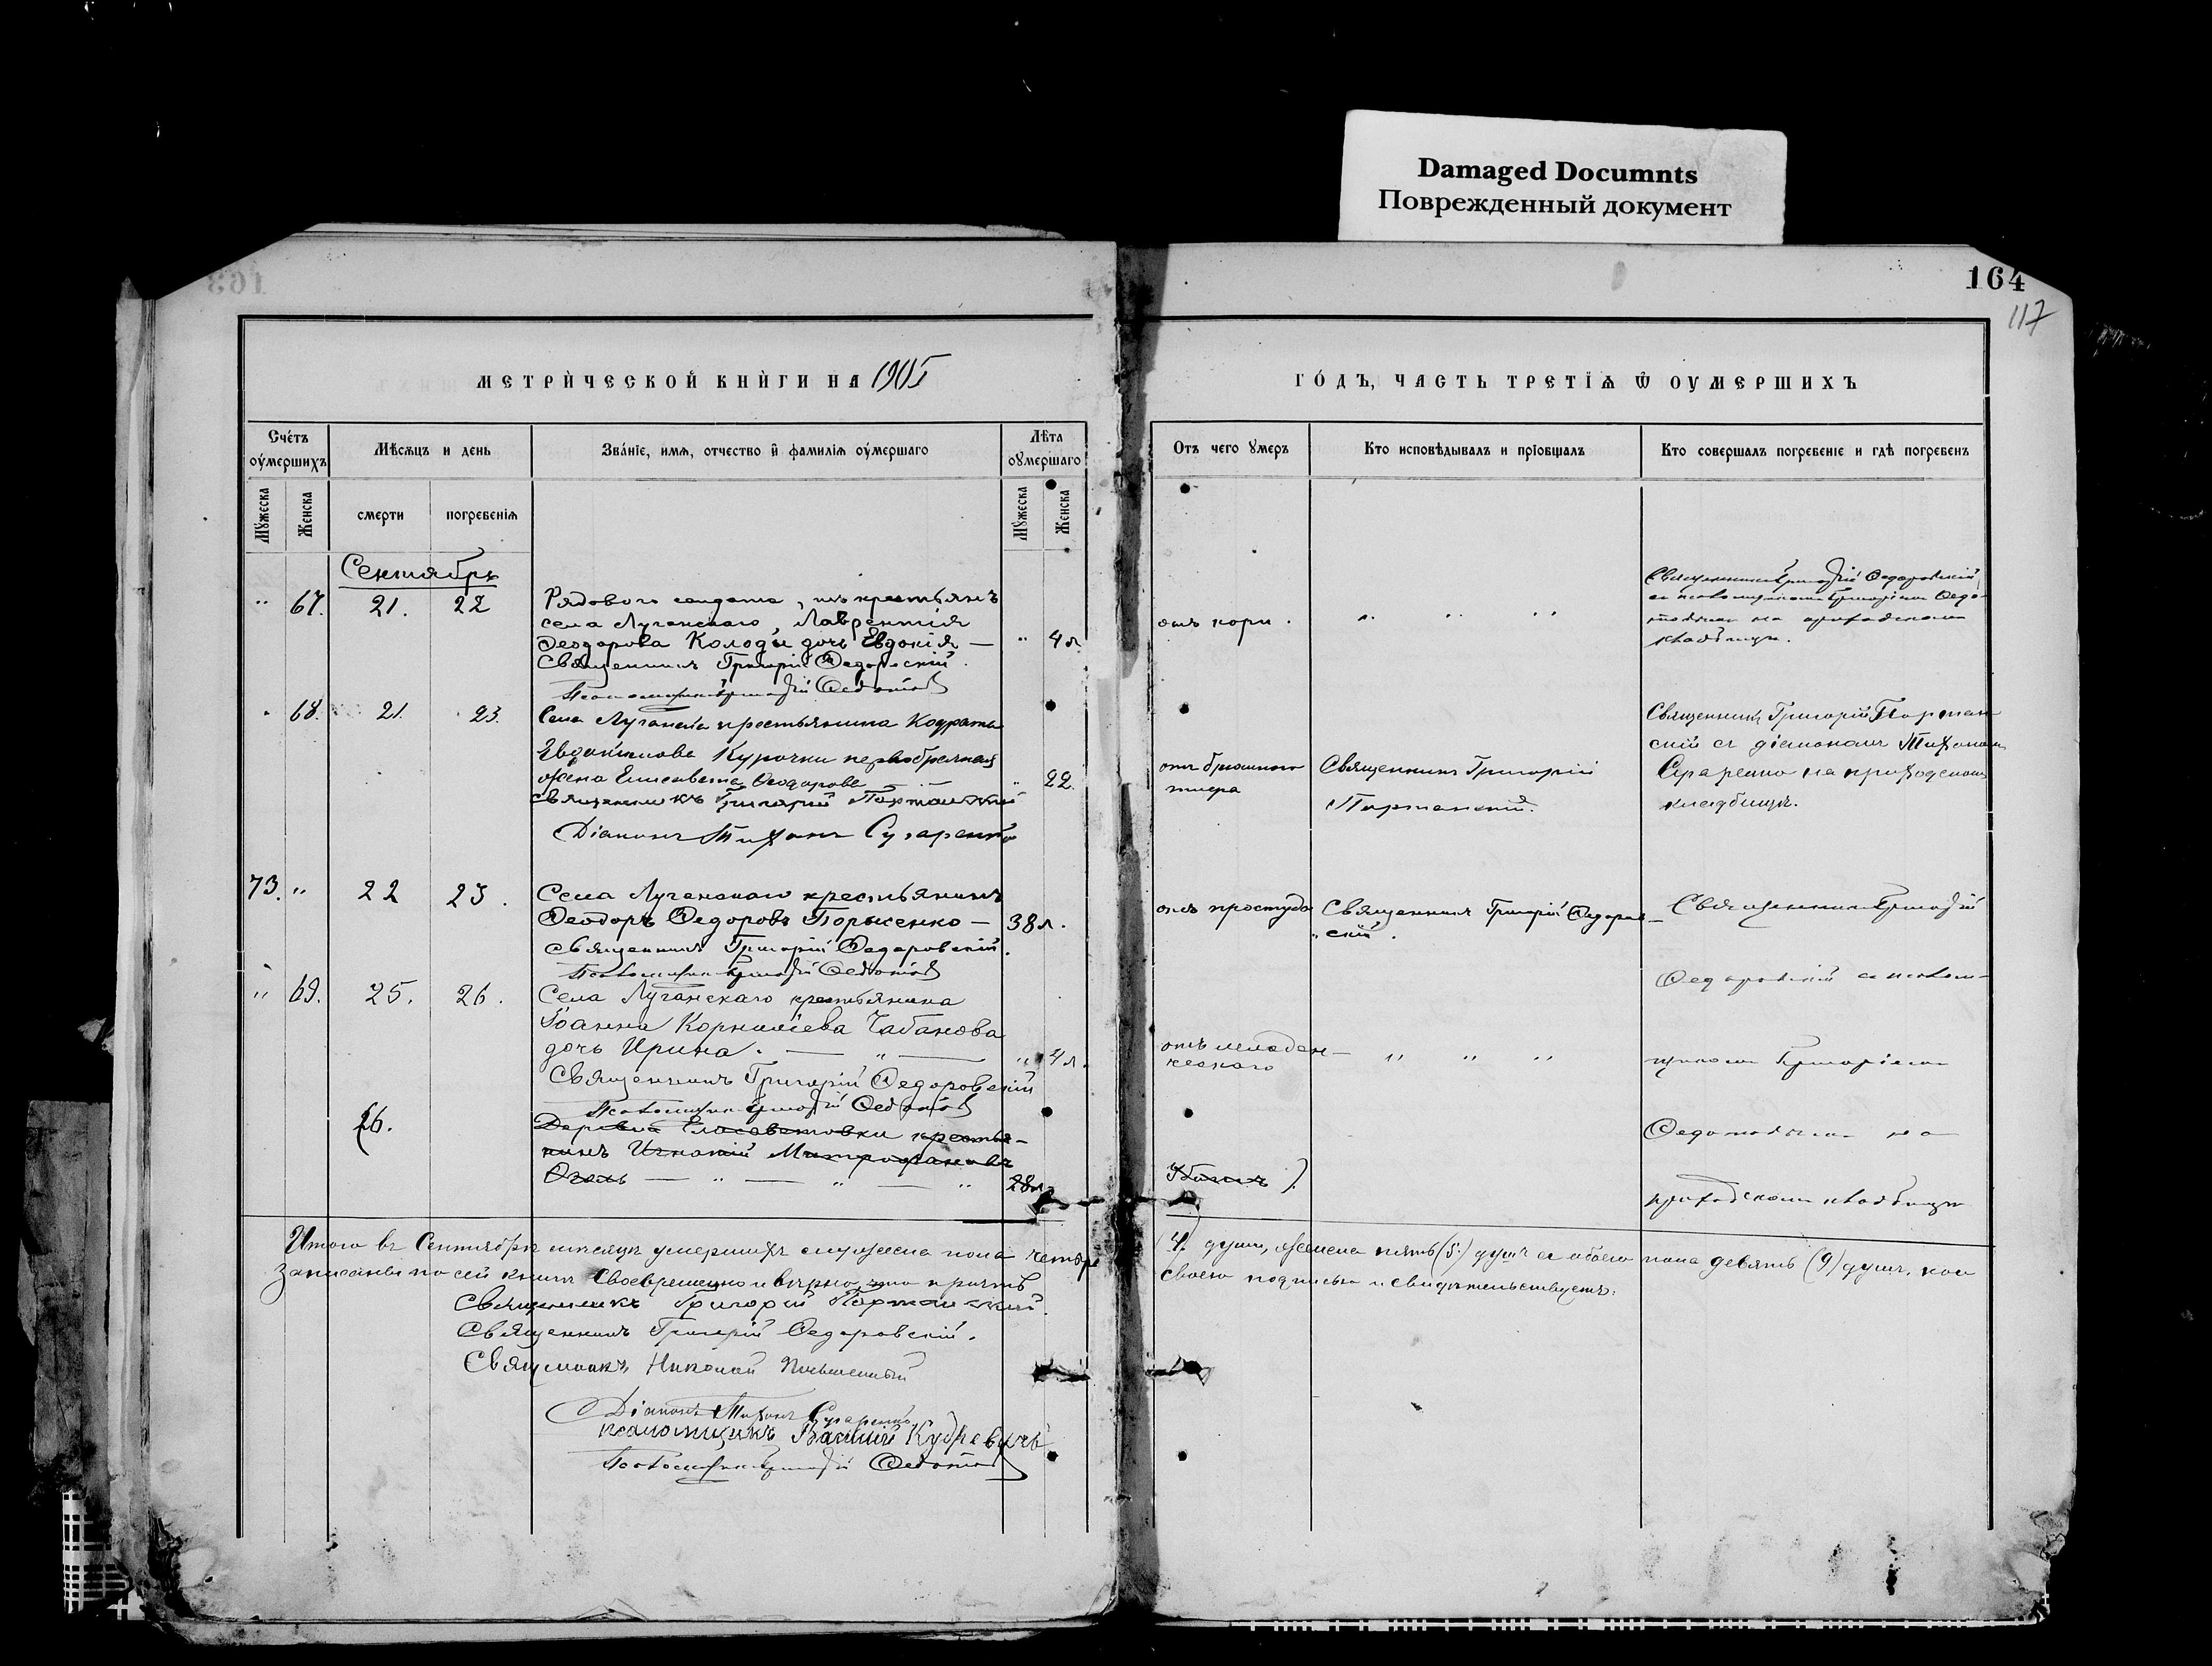 Damaged Documnts
Поврежденный документ
164
117
МЕТРИ́ЧЕСКОЙ КНИ́ГИ НА 1905
ГО́ДЪ, ЧАСТЬ ТРЕТІѦ Ѿ ОУМЕРШИХЪ
Сче́тъ оу́мершихъ
Мѣсѧцъ и день
Зва́ніе, имѧ, отчество и҆ фамилїѧ оу́мершаго
Лѣта оумершаго
Отъ чего ꙋмеръ
Кто исповѣдывалъ и прїобщалъ
Кто совершалъ погребенїе и гдѣ погребенъ
Мꙋжеска
Женска
смерти
погребенїѧ
Мꙋжеска
Женска
Сентябрь
" 67. 21. 22
Рядового солдата, изъ крестьянъ
села Луганскаго, Лаврентія
Ѳеодорова Колоды дочь Евдокія —
Священникъ Григорій Ѳедоровскій.
Псаломщикъ Григорій Ѳедотовъ
" 4 л
отъ кори.
" " "
Священникъ Григорій Ѳедоровскій
съ псаломщикомъ Григоріемъ Ѳедо-
товымъ на приходскомъ
кладбищѣ.
68. 21. 23.
Села Луганска крестьянина Кодрата
Евдокимова Курочки первобрачная
жена Елисавета Ѳеодорова
священникъ Григорій Портанский
Діаконъ Тихонъ Сугаренко
" 22.
отъ брюшного
тифа
Священникъ Григорій
Портанскій.
Священникъ Григорій Портан-
скій съ діакономъ Тихономъ
на приходскомъ
кладбищѣ.
73. " 22 23.
Села Луганскаго крестьянинъ
Ѳеодоръ Ѳедоровъ Борисенко —
священникъ Григорій Ѳедоровскій.
Псаломщикъ Григорій Ѳедотовъ
38 л.
отъ простуды
Священникъ Григорій Ѳедоров-
скій.
Священникъ Григорій
Ѳедоровскій съ псалом-
" 69. 25. 26.
Села Луганскаго крестьянина
Іоанна Корниліева Чабанова
дочь Ирина. — " —
Священникъ Григорій Ѳедоровскій
Псаломщикъ Григорій Ѳедотовъ
" 4 л.
отъ младен-
ческаго
" " "
щикомъ Григоріемъ
(26.
Деревни Елисаветовки крестья-
нинъ Игнатій Митрофановъ
— " — " — "
28 л
Убитъ ).
Ѳедотовымъ на
приходскомъ кладбищѣ
Итого въ Сентябрѣ мѣсяцѣ умершихъ мужеска пола четыре
(4) душъ, женска пять (5) душъ а обоего пола девять (9) душъ, кои
Записаны по сей книгѣ своевременно и вѣрно, что причтъ
своею подписью и свидѣтельствуетъ:
Священникъ Григорій Портанский.
Священникъ Григорій Ѳедоровскій.
Священникъ Николай
Діаконъ Тихонъ Сугаренко
псаломщикъ Василій Кудревичъ
Псаломщикъ Григорій Ѳедотовъ